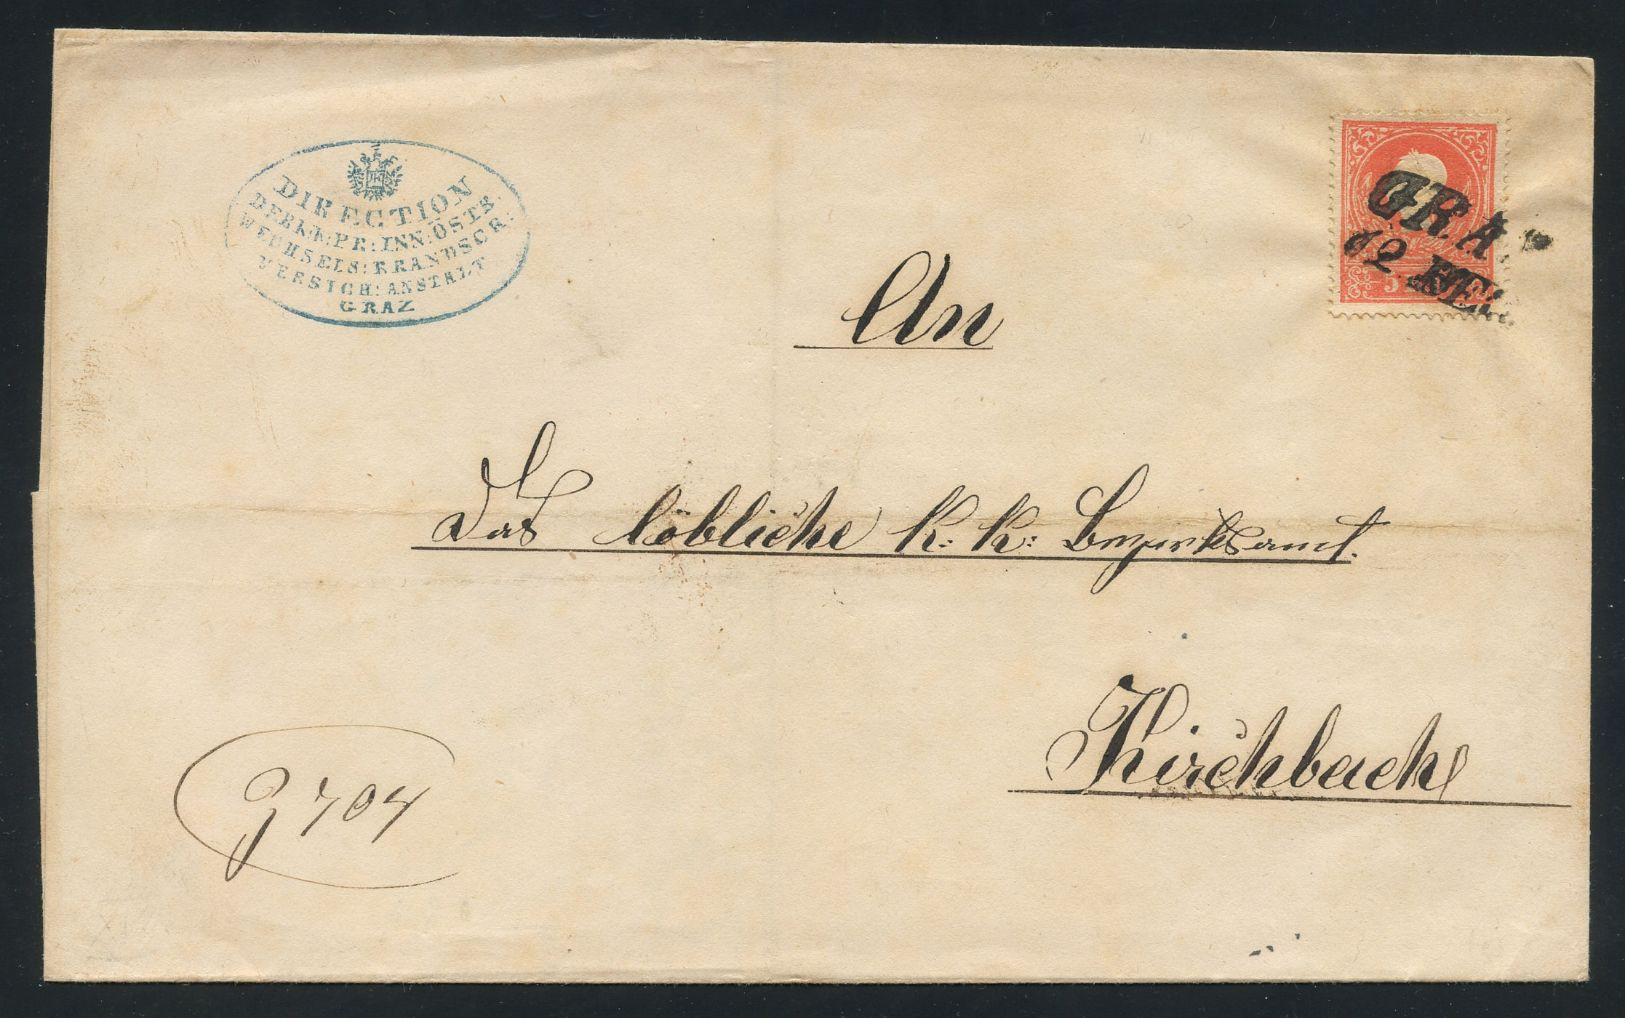 DIRECTION
DER K:K: PR: INN: ÖSTR.
WECHSELS: BRANDSCH:
VERSICH: ANSTALT
GRAZ
GRA
12
5
An
Das löbliche K: K: Bezirksamt.
Kirchbach
Z 704